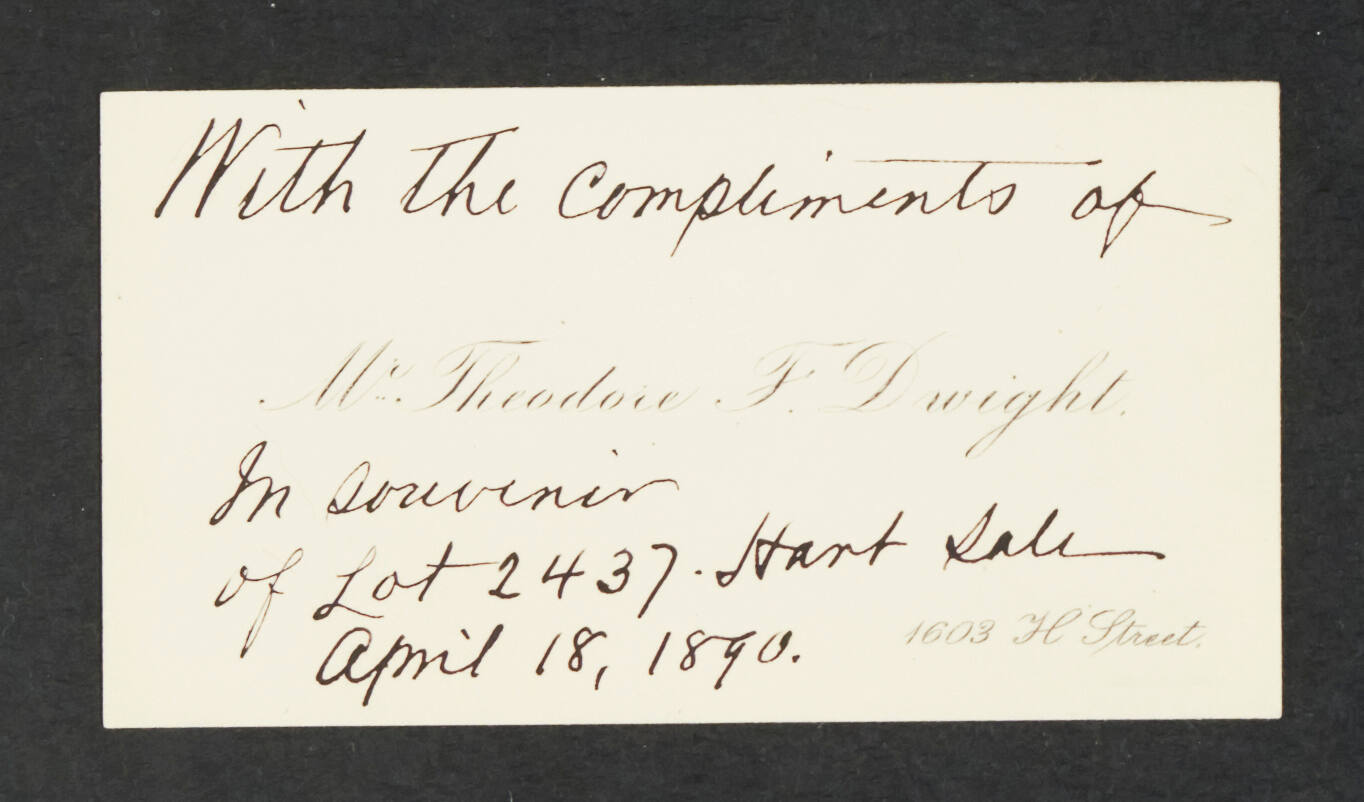 With the compliments of
Mr. Theodore F. Dwight.
In souvenir
of Lot 2437. Hart Sale
April 18, 1890.
1603 H Street.